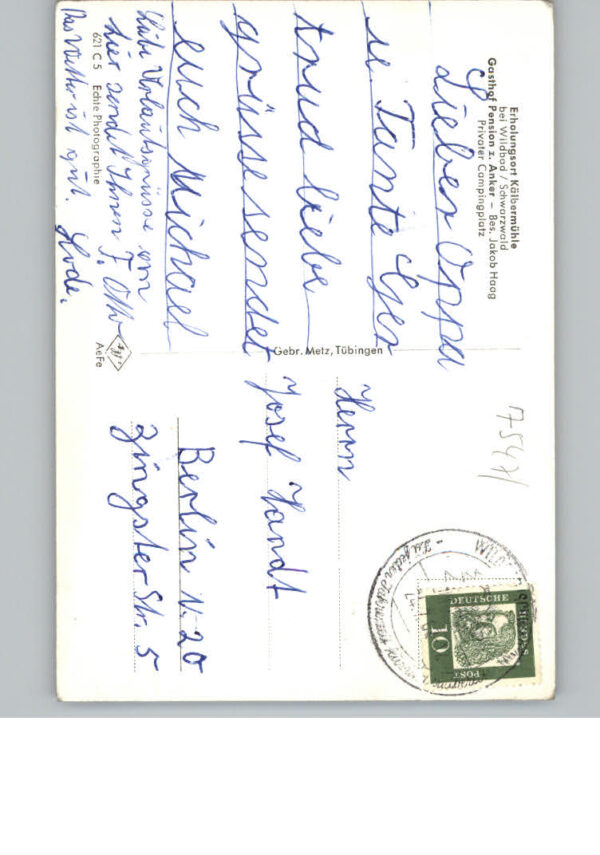 Erholungsort Kälbermühle
bei Wildbad / Schwarzwald
Gasthof Pension z. Anker – Bes. Jakob Haag
Privater Campingplatz
Lieber Oppa
u Tante Ger
trud liebe
grüsse sendet
euch Michael
Liebe Urlaubsgrüsse von
hier sendet Ihnen F. Otto
Das Wetter ist gut.
621 C 5 Echte Photographie
AeFe
Gebr. Metz, Tübingen
Herrn
Josef Handt
Berlin N. 20
Zingster Str. 5
7547/
DEUTSCHE
POST
10